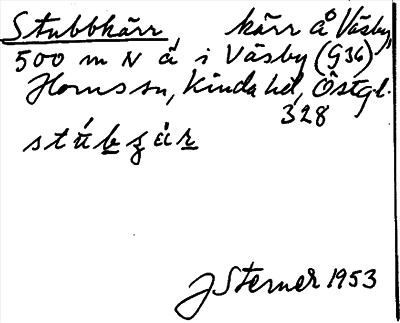 Stubbkärr, kärr å Väsby,
500 m N å i Väsby (G36)
Horns sn, Kinda hd, Östgl.
328
J Sterner 1953